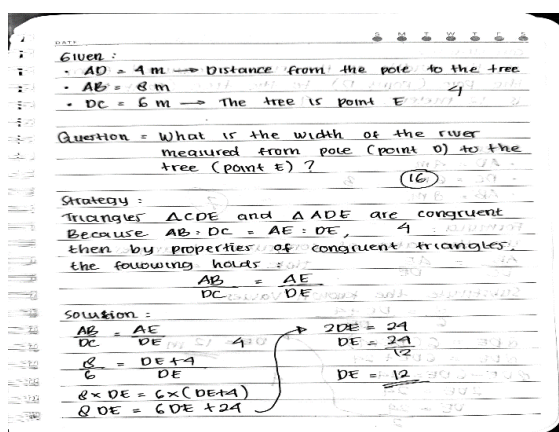 DATE
S M T W T F S
Given :
• AD = 4 m → Distance from the pole to the tree
• AB = 8 m
• DC = 6 m → The tree is point E
4
Question = What is the width of the river
measured from pole (point D) to the
tree (point E) ?
16
Strategy :
Triangles △CDE and △ADE are congruent
Because AB : DC = AE : DE, 4
then by properties of congruent triangles,
the following holds :
AB = AE
DC DE
Solution :
AB = AE
DC DE 4
8 = DE+4
6 DE
8 × DE = 6 × (DE+4)
8 DE = 6 DE + 24
2DE = 24
DE = 24
12
DE = 12